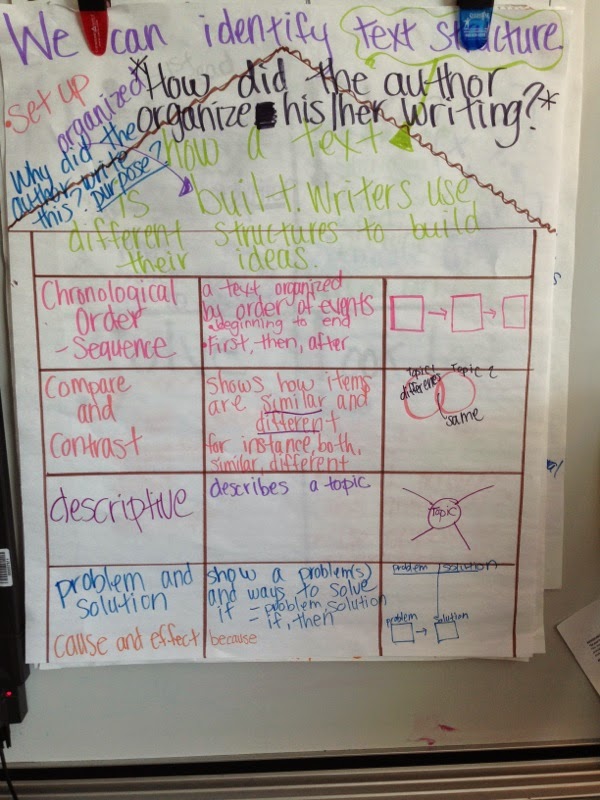 We can identify text structure.
*How did the author
organize his/her writing?*
• set up
organized
Why did the
author write
this? purpose?
How a text
is built. Writers use
different structures to build
their ideas.
Chronological
Order
- Sequence
a text organized
by order of events
• beginning to end
• First, then, after
Compare
and
Contrast
shows how items
are similar and
different
for instance, both,
similar, different
Topic 1
Topic 2
different
same
descriptive
describes a topic
Topic
problem and
solution
show a problem(s)
and ways to solve
it = problem, solution
if, then
problem solution
problem solution
cause and effect
because